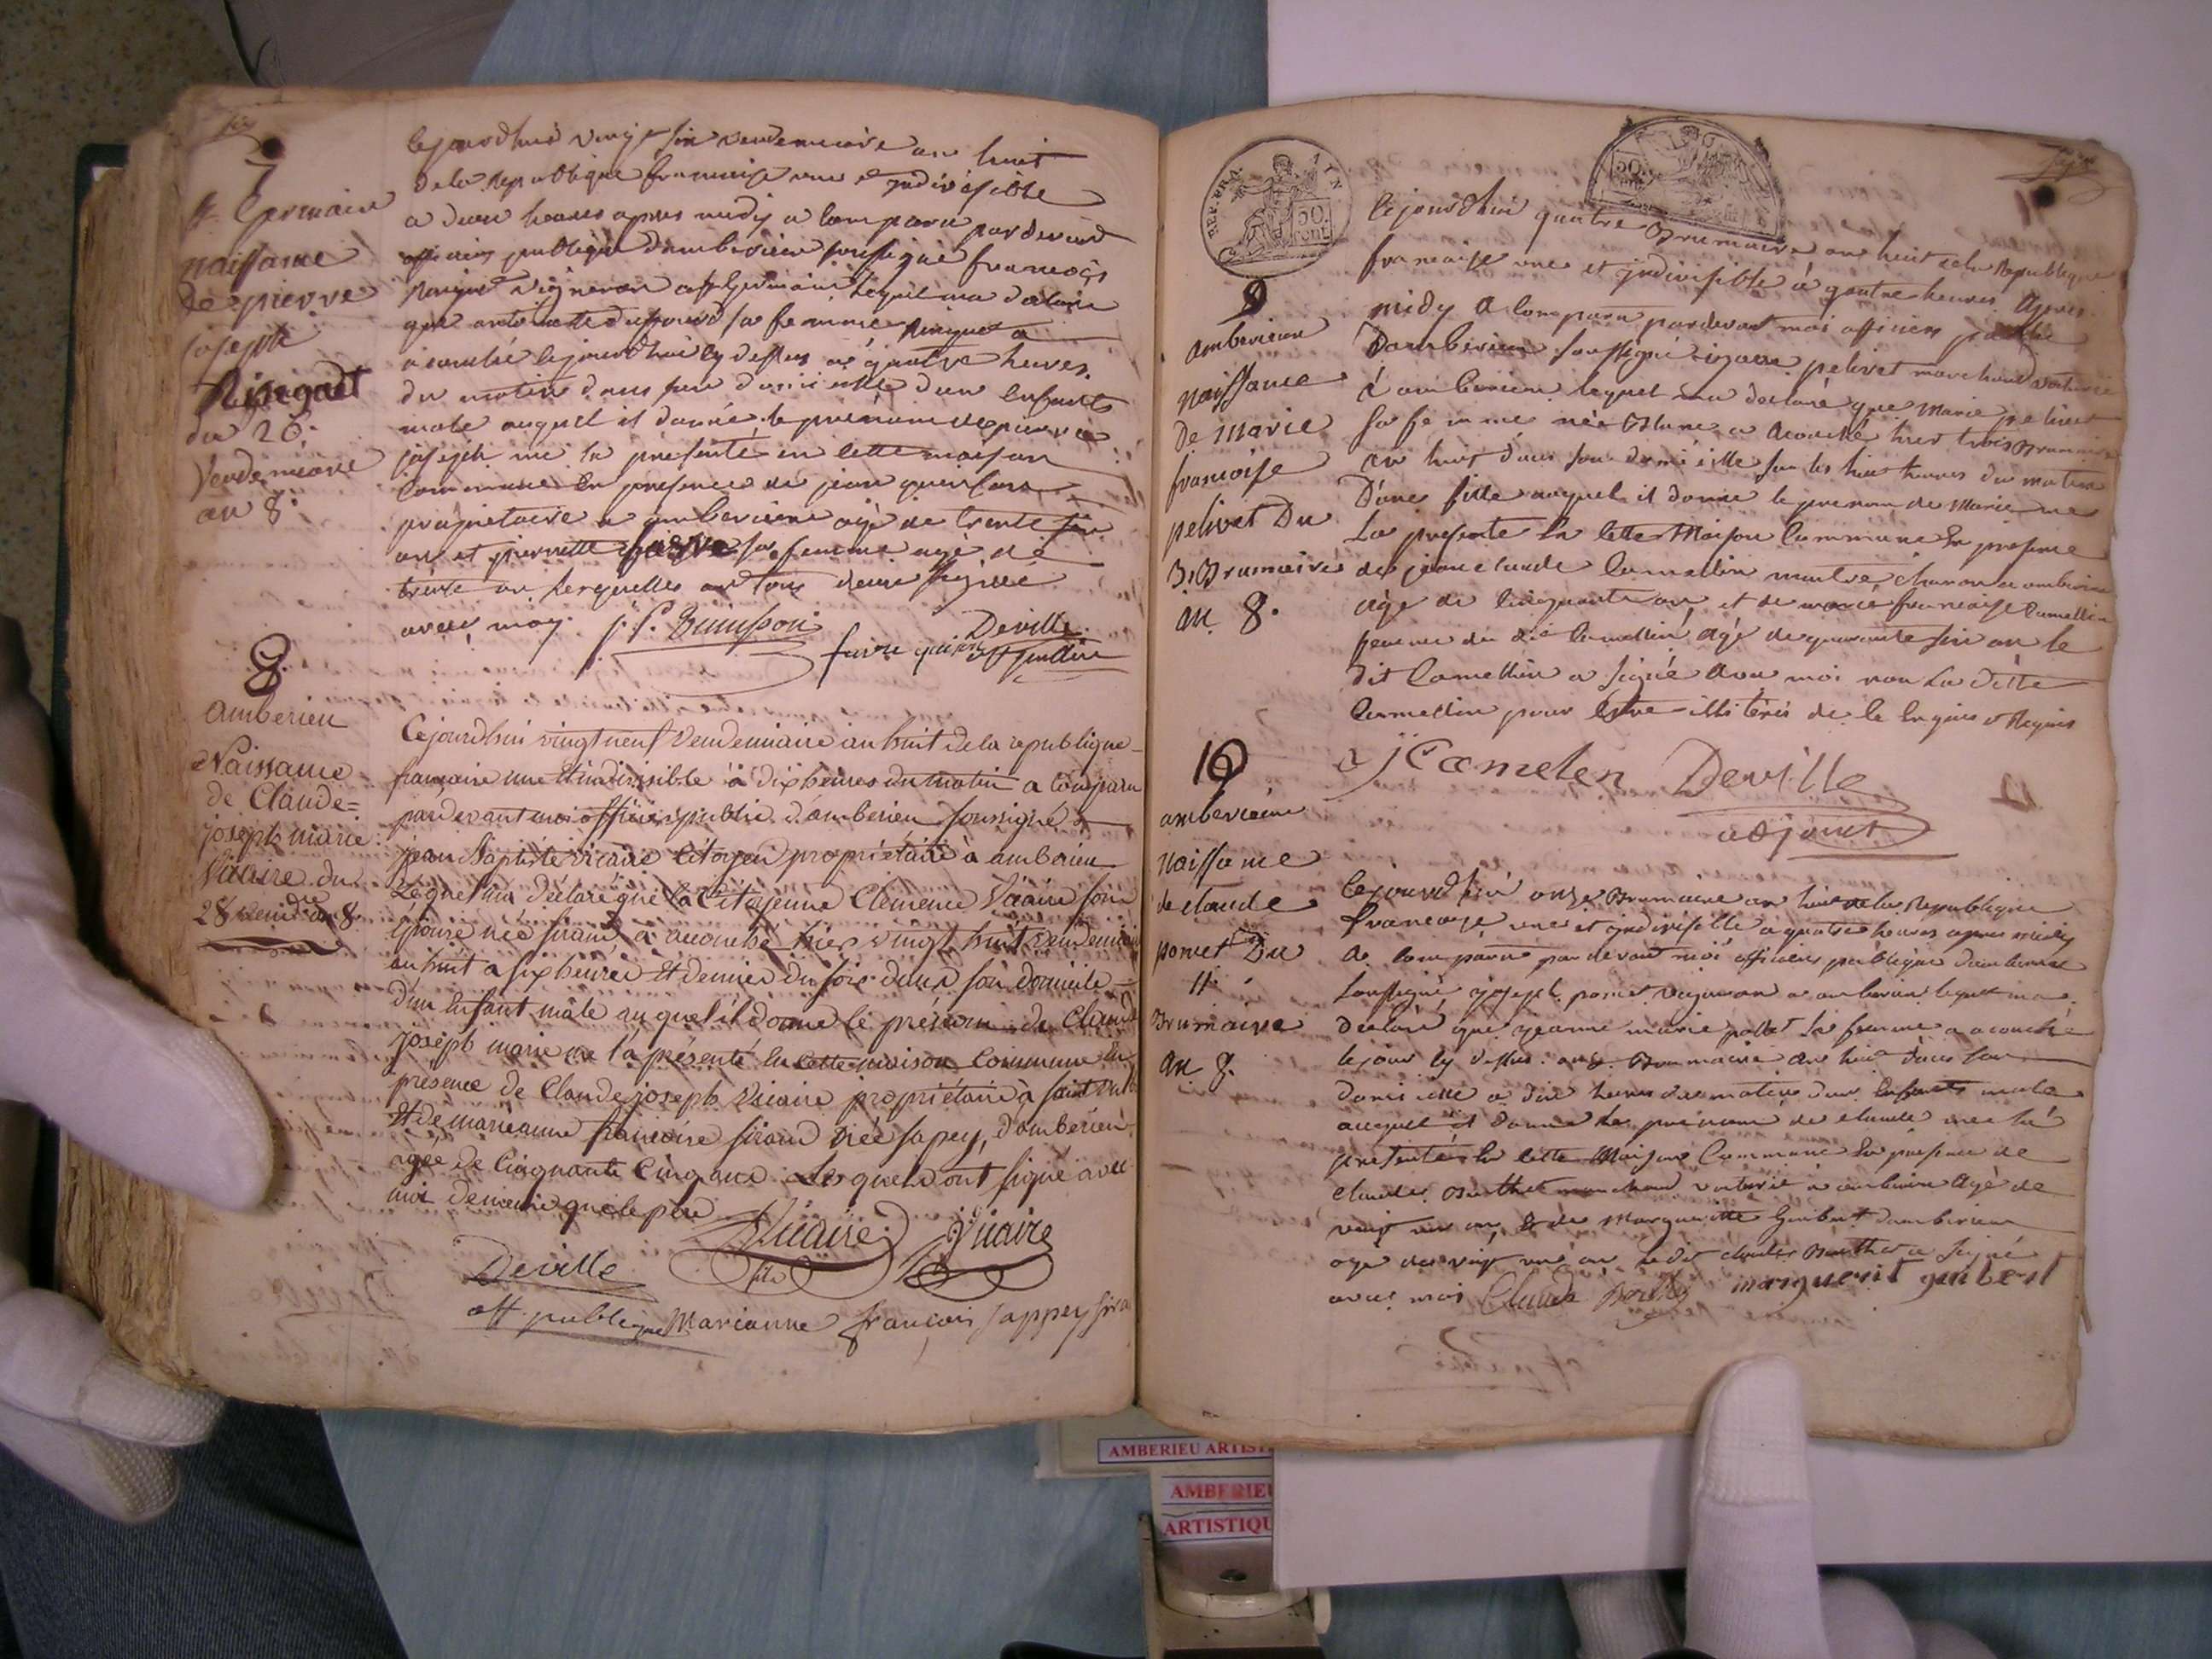 7
St Germain
naissance
de pierre
joseph
Ringuet
du 26
Vendemiaire
an 8.
Cejourdhui vingt six vendemiaire an huit
de la republique francoise une et indivisible
a deux heures apres midy a comparu pardevant
officier publique d'amberieu soussigné francois
vigneron a st Germain lequel ma declaré
que antoinette sa femme
acouché cejourdhui cy dessus a quatre heures
du matin dans son domicille dun enfant
male auquel il donné le prenom de pierre
joseph me la presenté en cette maison
commune en presence de jean
proprietaire a amberieu agé de trente six
ans et pierrette sa femme agé de
trente an lesquelles ont tous deux signé
avec moy
Deville
off publice
8
amberieu
Naissance
de Claude=
joseph marie
Vicaire du
28 vendre an 8.
Cejourdhui vingt neuf Vendemiaire an huit de la republique
francaise une et indivisible à dix heures du matin a comparu
pardevant moi officier public d'amberieu soussigné
jean Baptiste vicaire citoyen propriétaire à amberieu
Lequel ma déclaré que la Citoyenne Clemence Vicaire son
épouse née sirand à accouché hier vingt huit vendemiaire
an huit a six heures et demie du soir dans son domicile
d'un Enfant mâle auquel il donne le prénom de Claude
joseph marie me l'a présenté En cette maison commune En
présence de Claude joseph Vicaire propriétaire à saint
Et de marieanne francoise sirand née sapey, d'amberieu
agée de Cinquante Cinq ans Lesquels ont signé avec
moi de même que le père
Vicaire Vicaire
fils
Deville
off publique Marianne francois sappey sira
9
amberieu
naissance
de marie
francoise
pelivet Du
3 Brumaire
an 8.
Cejourdhui quatre Brumaire an huit de la Republique
francaise une et indivisible à quatre heures apres
midy a comparu pardevant moi officier public
Damberieu soussigné pelivet marchand voiturié
à amberieu lequel ma declaré que Marie pelivet
sa femme née a acouché hier trois Brumaire
an huit dans son domicille sur les huit heures du matin
D'une fille auquel il donne le prenom de Marie me
La presente En cette Maison Commune En presence
de jean claude Camellin maitre charon a amberieu
agé de cinquante an, et de marie francoise Camellin
femme du dit Camellin, agé de quarante six an le
dit Camellin a signé avec moi non La ditte
Camellin pour Estre illitérés de ce Enquis et Requis
J C Camelen Deville
adjoint
10
amberieu
naissance
de claude
ponet Du
11
Brumaire
an 8.
Cejourdhui onze Brumaire an huit de la Republique
francaise une et indivisible a quatre heures apres midy
A comparu par devant moi officier publique d'amberieu
soussigné joseph ponet vigneron a amberieu lequel ma
declaré que jeanne marie pollet sa femme a acouché
le jour cy dessus onze Brumaire an huit dans son
domicille a dix heures du matin dun Enfant male
auquel il donne le prenom de claude me la
presenté En cette Maison Commune En presence de
claude Bouthet marchand voiturié a amberieu Agé de
vingt un an & de Marguerite Guibert d'amberieu
agé de vingt un an le dit claude Bouthet a signé
avec moi Claude marguerit guibert
REP. FRA.
50.
CENT.
AIN
AMBERIEU ARTIST
AMBERIEU
ARTISTIQU